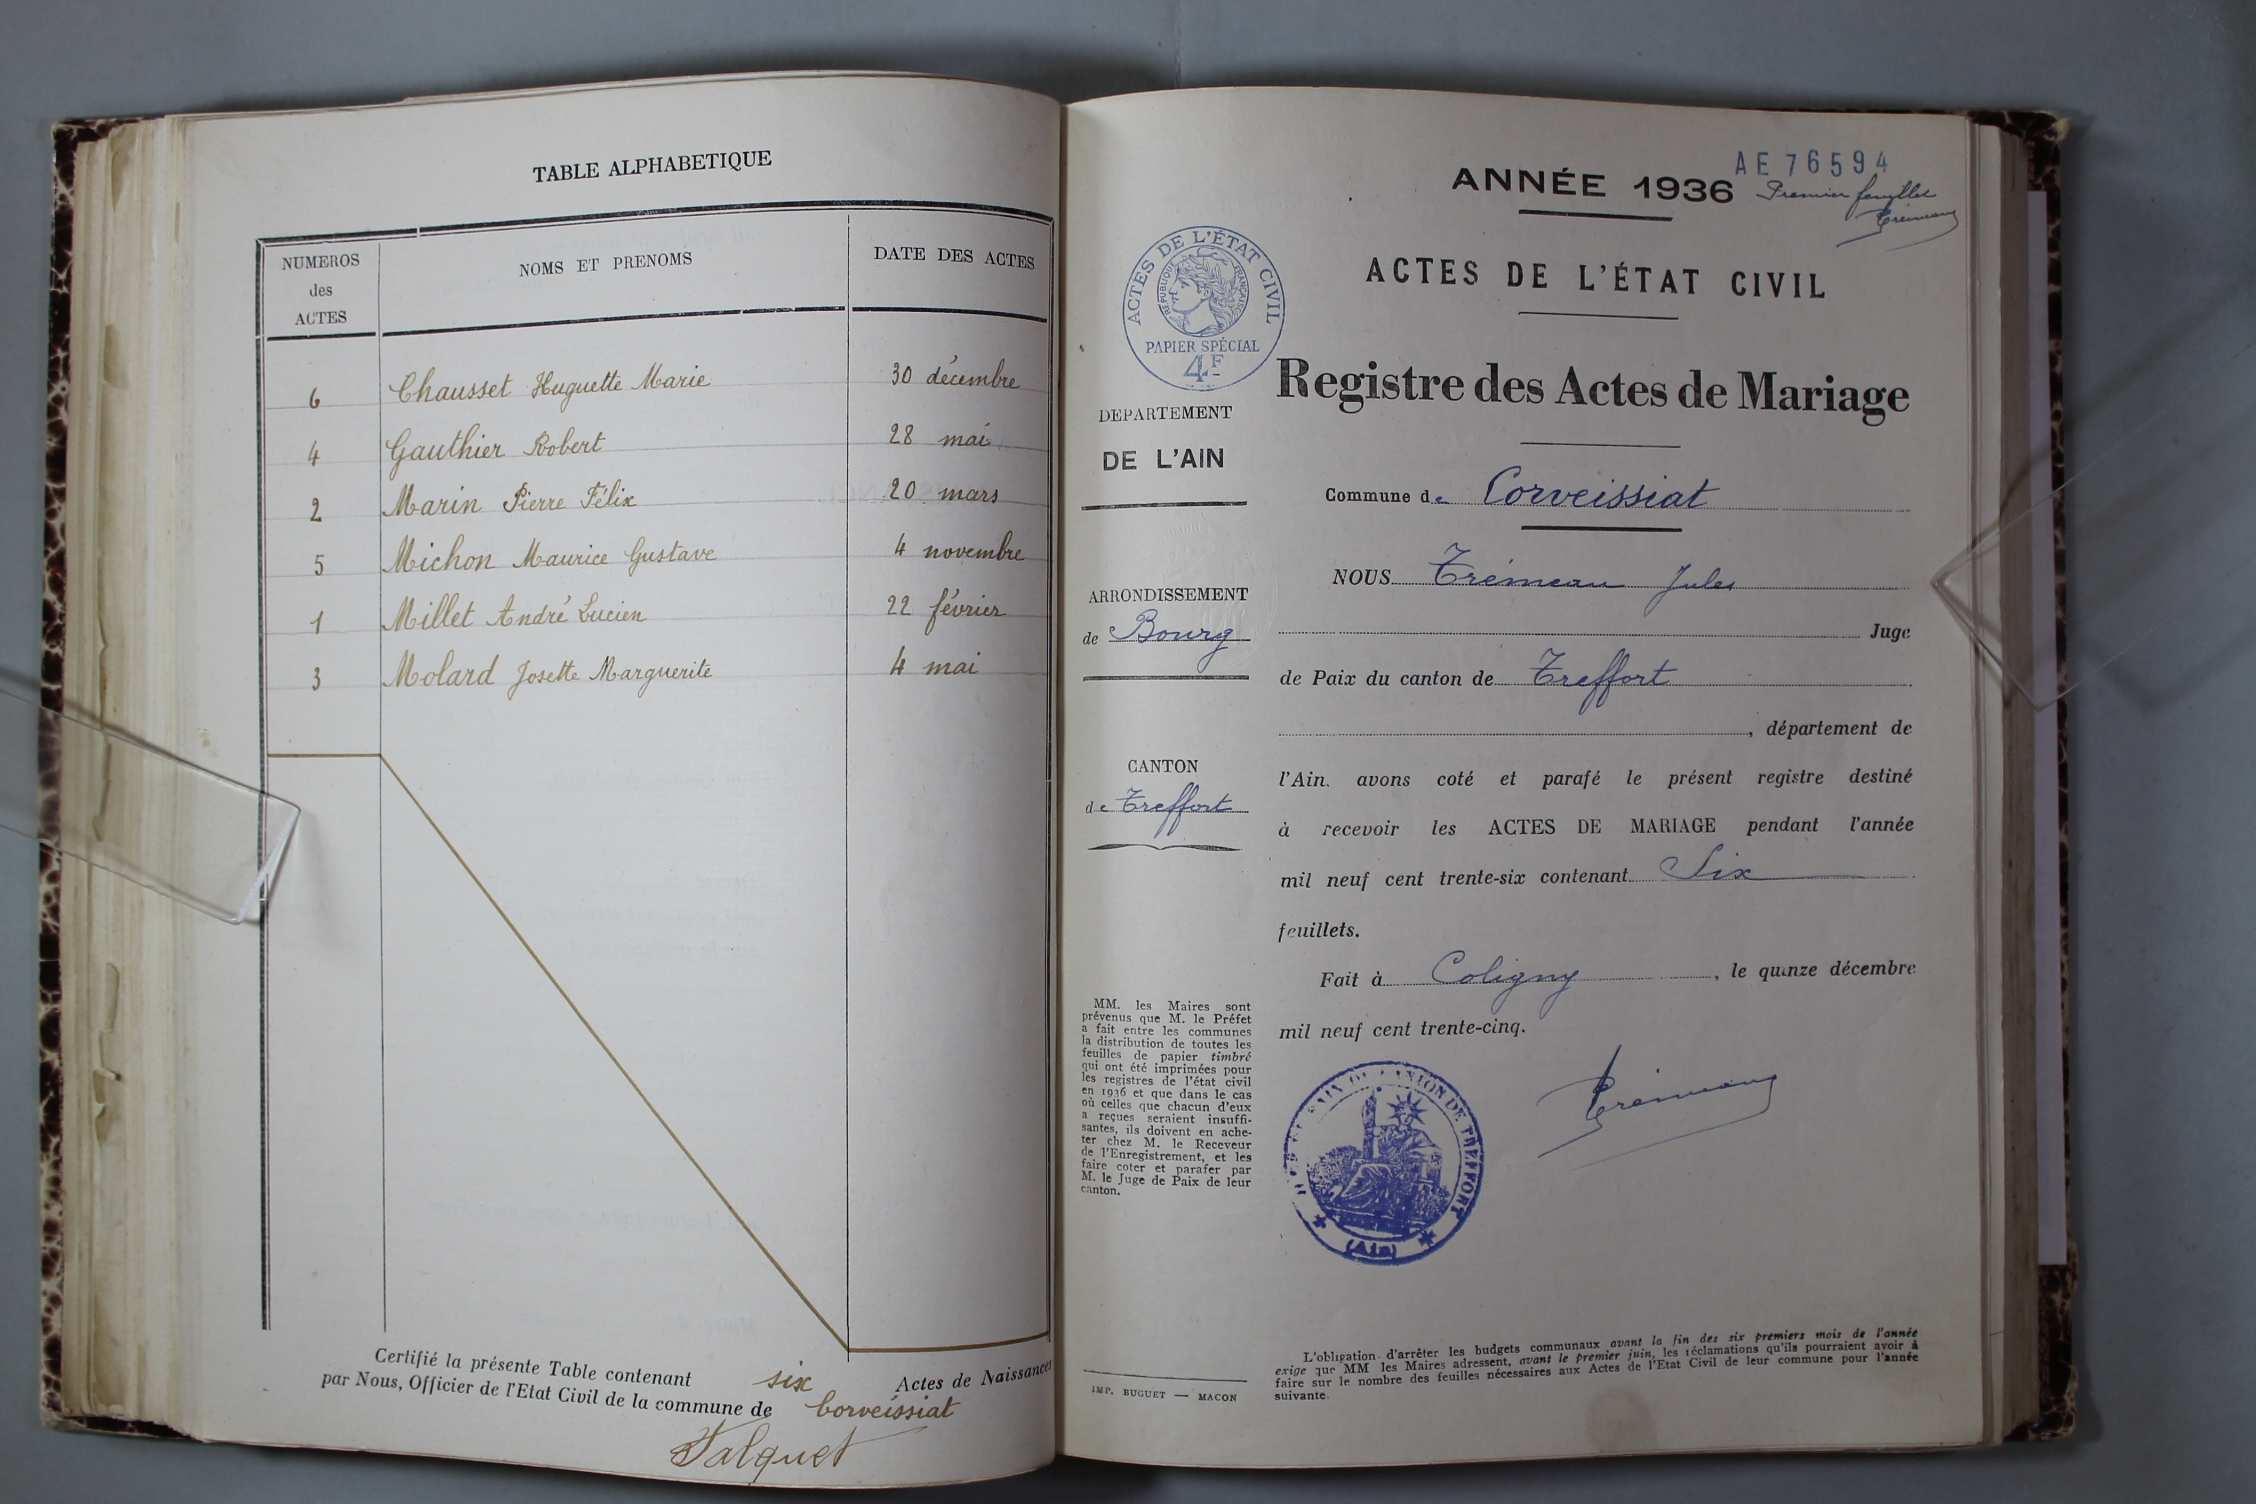 TABLE ALPHABETIQUE
NUMEROS
des
ACTES
NOMS ET PRENOMS
DATE DES ACTES
6 Chausset Huguette Marie 30 décembre
4 Gauthier Robert 28 mai
2 Marin Pierre Félix 20 mars
5 Michon Maurice Gustave 4 novembre
1 Millet André Lucien 22 février
3 Molard Josette Marguerite 4 mai
Certifié la présente Table contenant six Actes de Naissances
par Nous, Officier de l'Etat Civil de la commune de Corveissiat
AE 76594
ANNÉE 1936
Premier feuillet
Trémeau
ACTES DE L'ÉTAT CIVIL
RÉPUBLIQUE FRANÇAISE
PAPIER SPÉCIAL
4F
ACTES DE L'ÉTAT CIVIL
Registre des Actes de Mariage
DEPARTEMENT
DE L'AIN
ARRONDISSEMENT
de Bourg
CANTON
de Treffort
MM. les Maires sont
prévenus que M. le Préfet
a fait entre les communes
la distribution de toutes les
feuilles de papier timbré
qui ont été imprimées pour
les registres de l'état civil
en 1936 et que dans le cas
où celles que chacun d'eux
a reçues seraient insuffi-
santes, ils doivent en ache-
ter chez M. le Receveur
de l'Enregistrement, et les
faire coter et parafer par
M. le Juge de Paix de leur
canton.
IMP. BUGUET — MACON
Commune de Corveissiat
NOUS Trémeau Jules
Juge
de Paix du canton de Treffort
, département de
l'Ain. avons coté et parafé le présent registre destiné
à recevoir les ACTES DE MARIAGE pendant l'année
mil neuf cent trente-six contenant Six
feuillets.
Fait à Coligny, le quinze décembre
mil neuf cent trente-cinq.
Trémeau
CANTON DE TREFFORT
(Ain)
L'obligation d'arrêter les budgets communaux avant la fin des six premiers mois de l'année
exige que MM les Maires adressent, avant le premier juin, les réclamations qu'ils pourraient avoir à
faire sur le nombre des feuilles nécessaires aux Actes de l'Etat Civil de leur commune pour l'année
suivante.